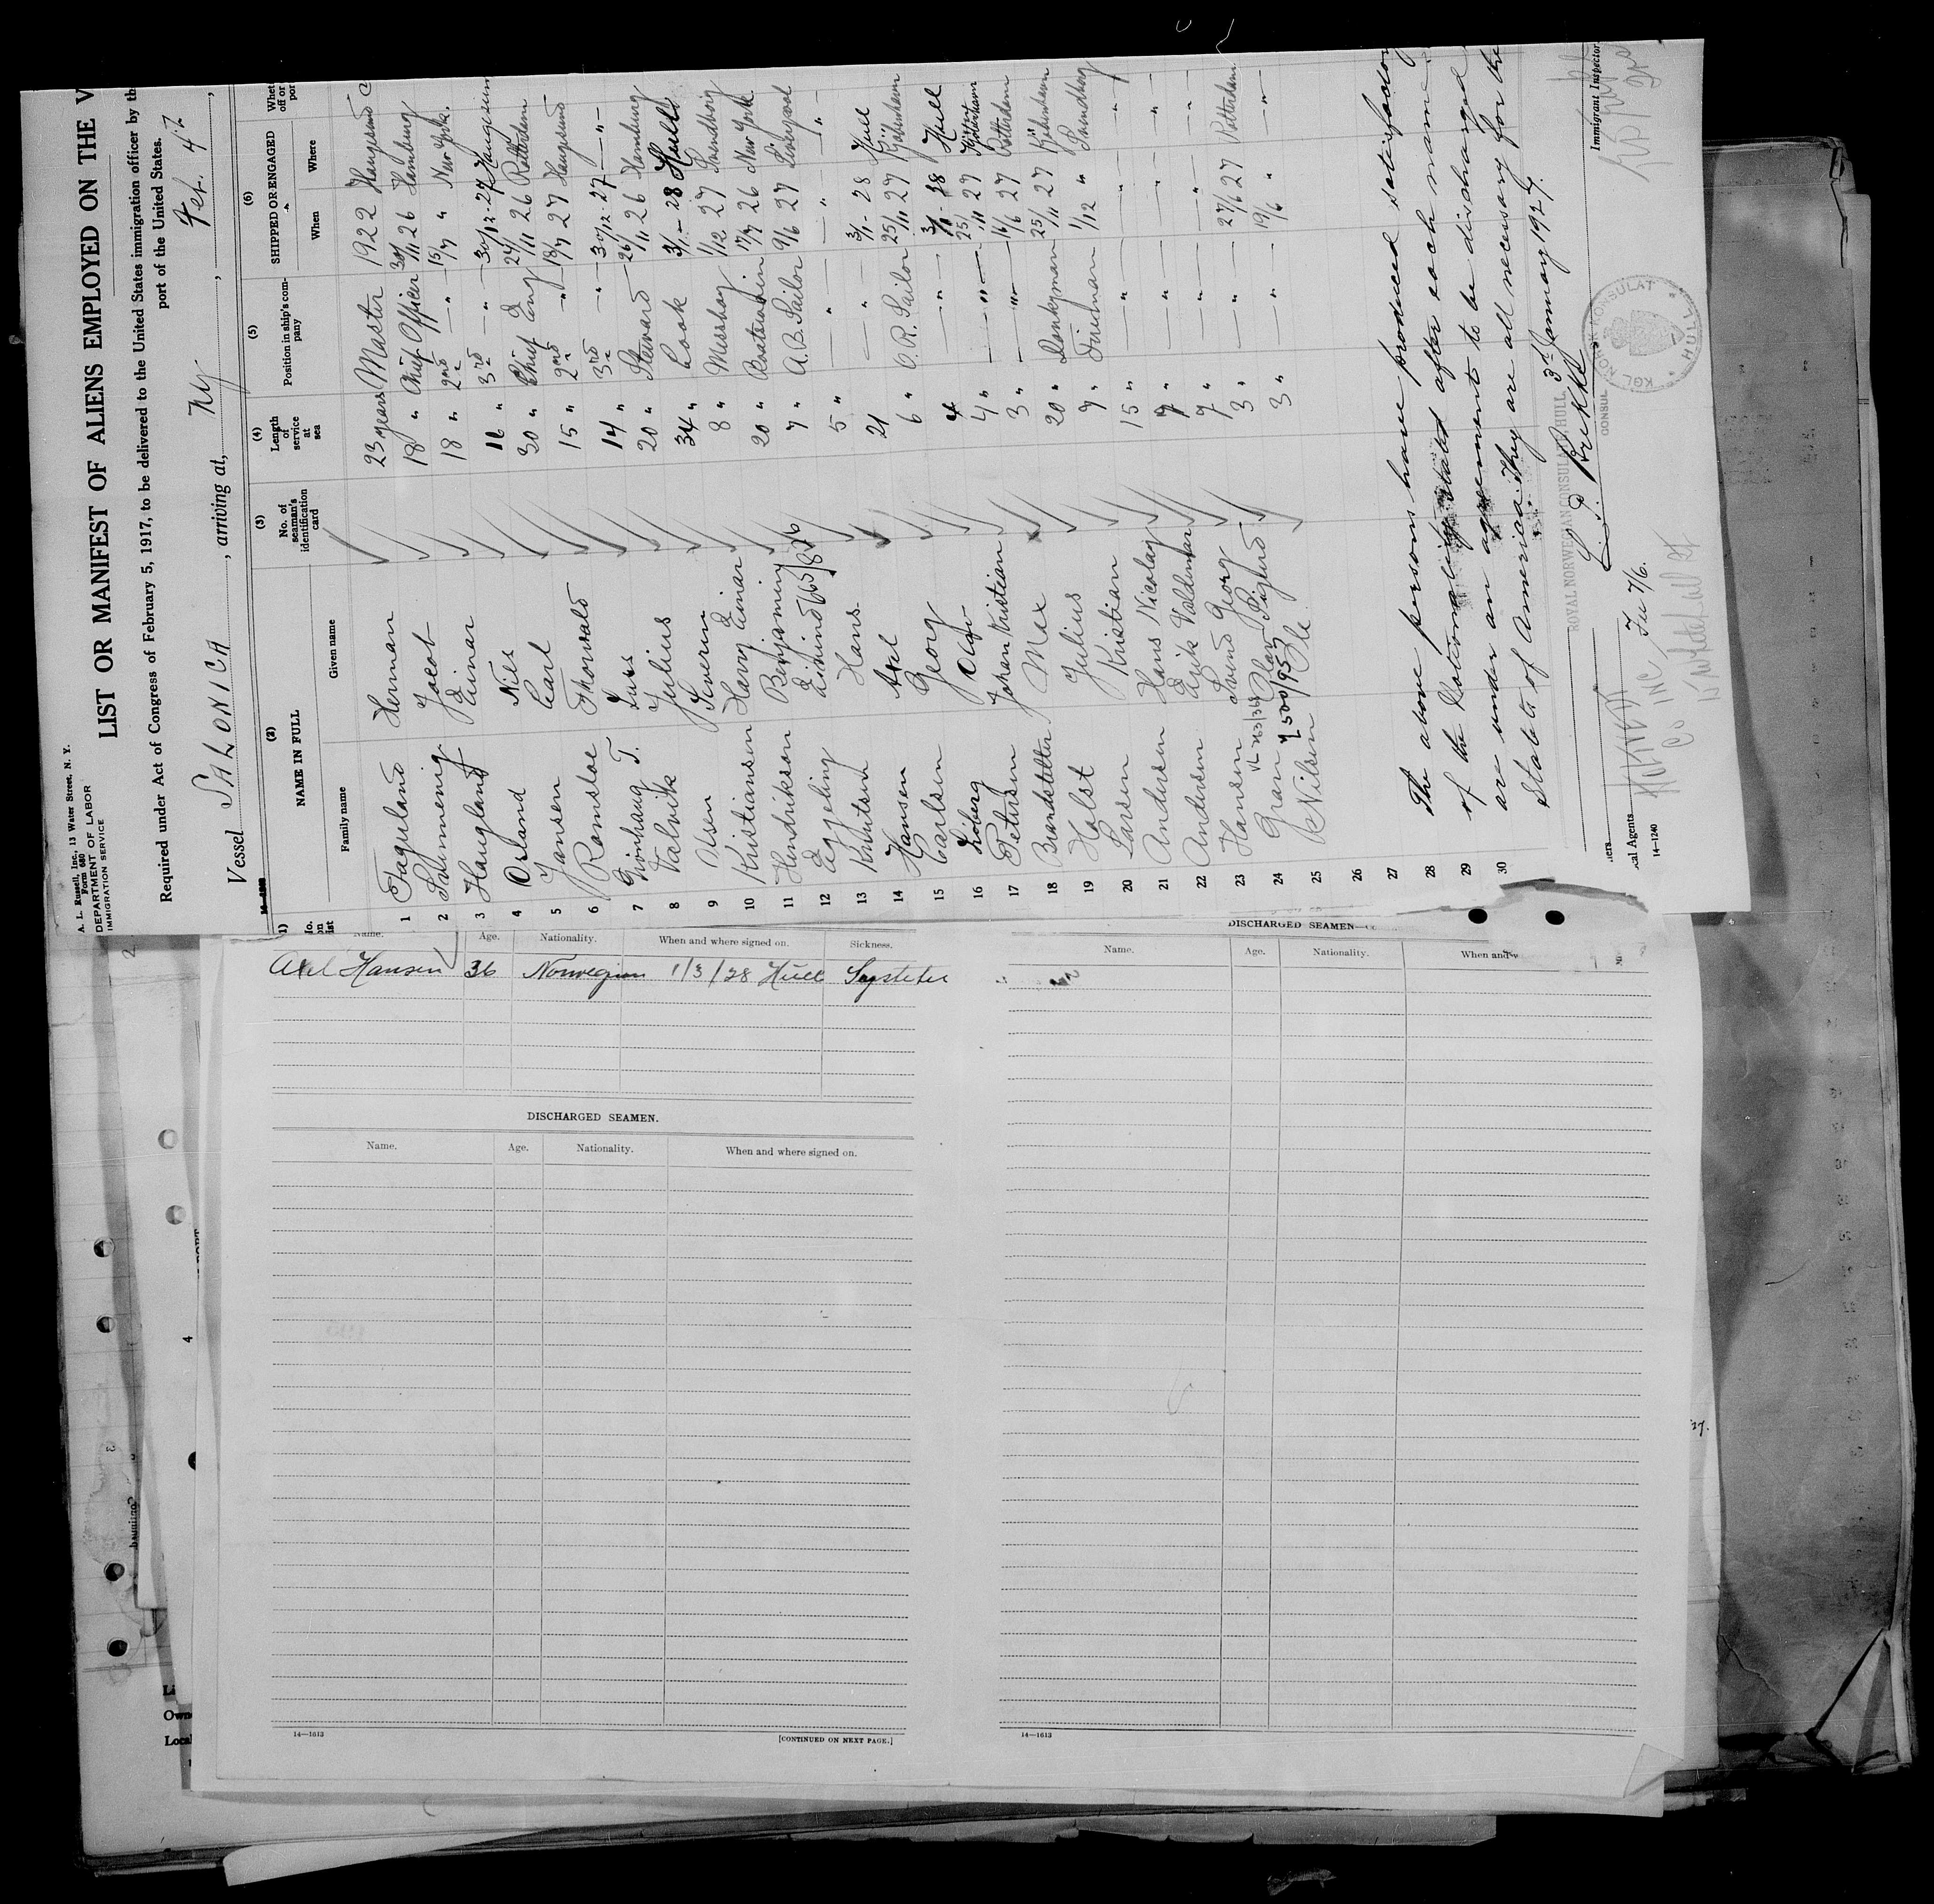 A. L. Russell, Inc., 13 Water Street, N. Y.
Form 680
DEPARTMENT OF LABOR
IMMIGRATION SERVICE
LIST OR MANIFEST OF ALIENS EMPLOYED ON THE V
Required under Act of Congress of February 5, 1917, to be delivered to the United States immigration officer by th
port of the United States.
Vessel SALONICA, arriving at, Ny, Feb. 4th,
(2) NAME IN FULL (3) No. of seaman's identification card (4) Length of service at sea (5) Position in ship's company (6) SHIPPED OR ENGAGED
Family name Given name When Where
1 Fageland Herman 23 years Master 1922 Haugesund
2 Jacob 18 " Chief Officer 30/11 26 Hamburg
3 Haugland Einar 18 " 2nd —"— 15/7 " New York.
4 Orland Nils 16 " 3rd —"— 30/12-27 Haugesund
5 Jansen Carl 30 " Chief Eng 24/11 26 Rotterdam
6 Ramsdae Thorvald 15 " 2nd —"— 19/7 27 Haugesund
7 Grönhaug T. Lars 14 " 3rd —"— 30/12-27 —"—
8 Valvik Julius 20 " Steward 26/11 26 Hamburg
9 Olsen Severin 34 " Cook 3/1-28 Hull
10 Kristiansen Harry Einar 8 " Messboy 1/12 27 Svendborg
11 Hendriksen Benjaming 20 " Boatswain 17/7 26 New York
12 7 " A.B. Sailor 9/6 27 Liverpool
13 Knutsen Hans 5 " —"— —"— —"—
14 Hansen Axel 21 —"— 3/1-28 Hull
15 Carlsen Georg 6 " O.R. Sailor 25/11 27 Kjöbenhavn
16 Löberg Olav 4 —"— 3/1-28 Hull
17 Petersen Johan Kristian 4 " —"— 25/11 27 Kjöbenhavn
18 Brandstetter Max 3 " —"— 16/6 27 Rotterdam
19 Holst Julius 20 " Donkeyman 25/11 27 Kjöbenhavn
20 Larsen Kristian 9 " Fireman 1/12 " Svendborg
21 Andersen Hans Nicolay 15 " —"— —"— —"—
22 Andersen Erik Valdemar 7 " —"— —"— —"—
23 Hansen Svend Georg 7 " —"— —"— —"—
24 Gran Olav Sigurd 3 " —"— 27/6 27 Rotterdam
25 Nilsen Ole 3 " —"— 19/6 " —"—
26
27
28
29
30
The above persons have produced satisfactory
of the Nationality stated after each name
are under an agreement to be discharged
States of America. They are all necessary for the
ROYAL NORWEGIAN CONSULATE, HULL, 3rd January 1927.
L. P. Brekke
CONSUL
KGL NORSK KONSULAT * HULL *
Immigrant Inspector.
cal Agents
14-1240
Name. Age. Nationality. When and where signed on. Sickness.
Axel Hansen 36 Norwegian 1/3/28 Hull
DISCHARGED SEAMEN.
Name. Age. Nationality. When and where signed on.
14—1613 [CONTINUED ON NEXT PAGE.]
DISCHARGED SEAMEN—
Name. Age. Nationality. When and
14—1613